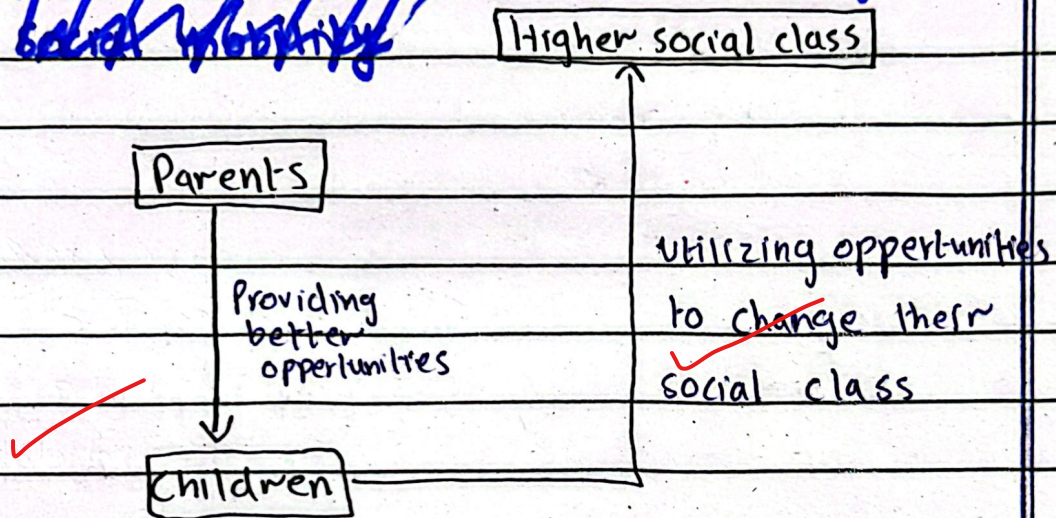 social mobility
Higher social class
Parents
Providing
better
oppertunities
utilizing oppertunities
to change their
social class
Children